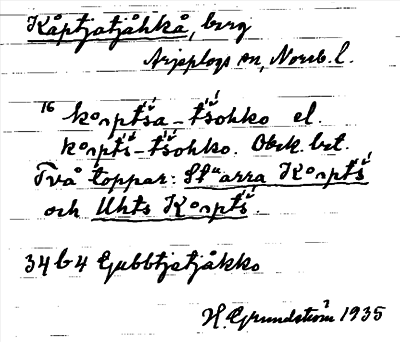 Kåptjatjåhkå, berg
Arjeplogs sn, Norrb. l.
16 kɒpt́š́a-t́š́ohko el.
kɒpt́š́-t́š́ohko. Obek. bet.
Två toppar: Stuarra Kɒpt́š́
och Uhts Kɒpt́š́.
34 b 4 Gjubbtjatjåkko
H. Grundström 1935